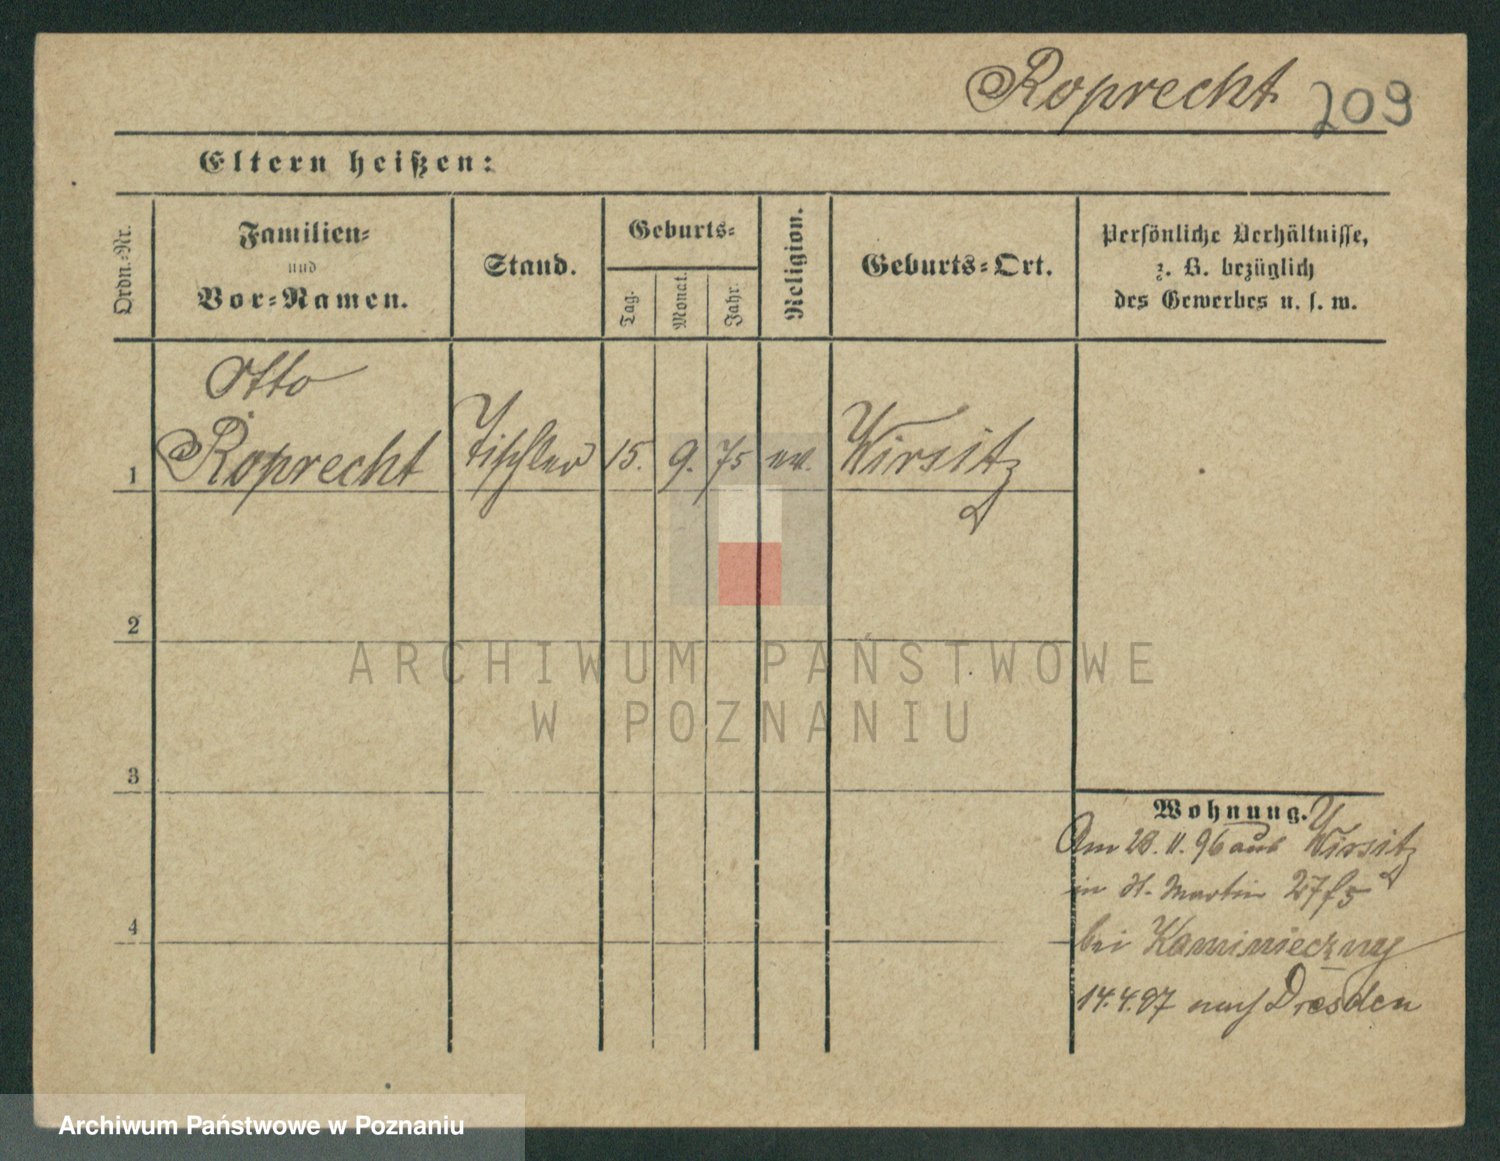 Roprecht 209
Eltern heißen:
Ordn.-Nr.
Familien-
und
Vor-Namen.
Stand.
Geburts-
Tag.
Monat.
Jahr.
Religion.
Geburts-Ort.
Persönliche Verhältnisse,
z. B. bezüglich
des Gewerbes u. s. w.
Otto
1 Roprecht Tischler 15. 9. 75 ev. Wirsitz
2
3
4
Wohnung.
Am 28.11.96 aus Wirsitz
in St. Martin 27
bei
14.4.97 nach Dresden
ARCHIWUM PAŃSTWOWE
W POZNANIU
Archiwum Państwowe w Poznaniu